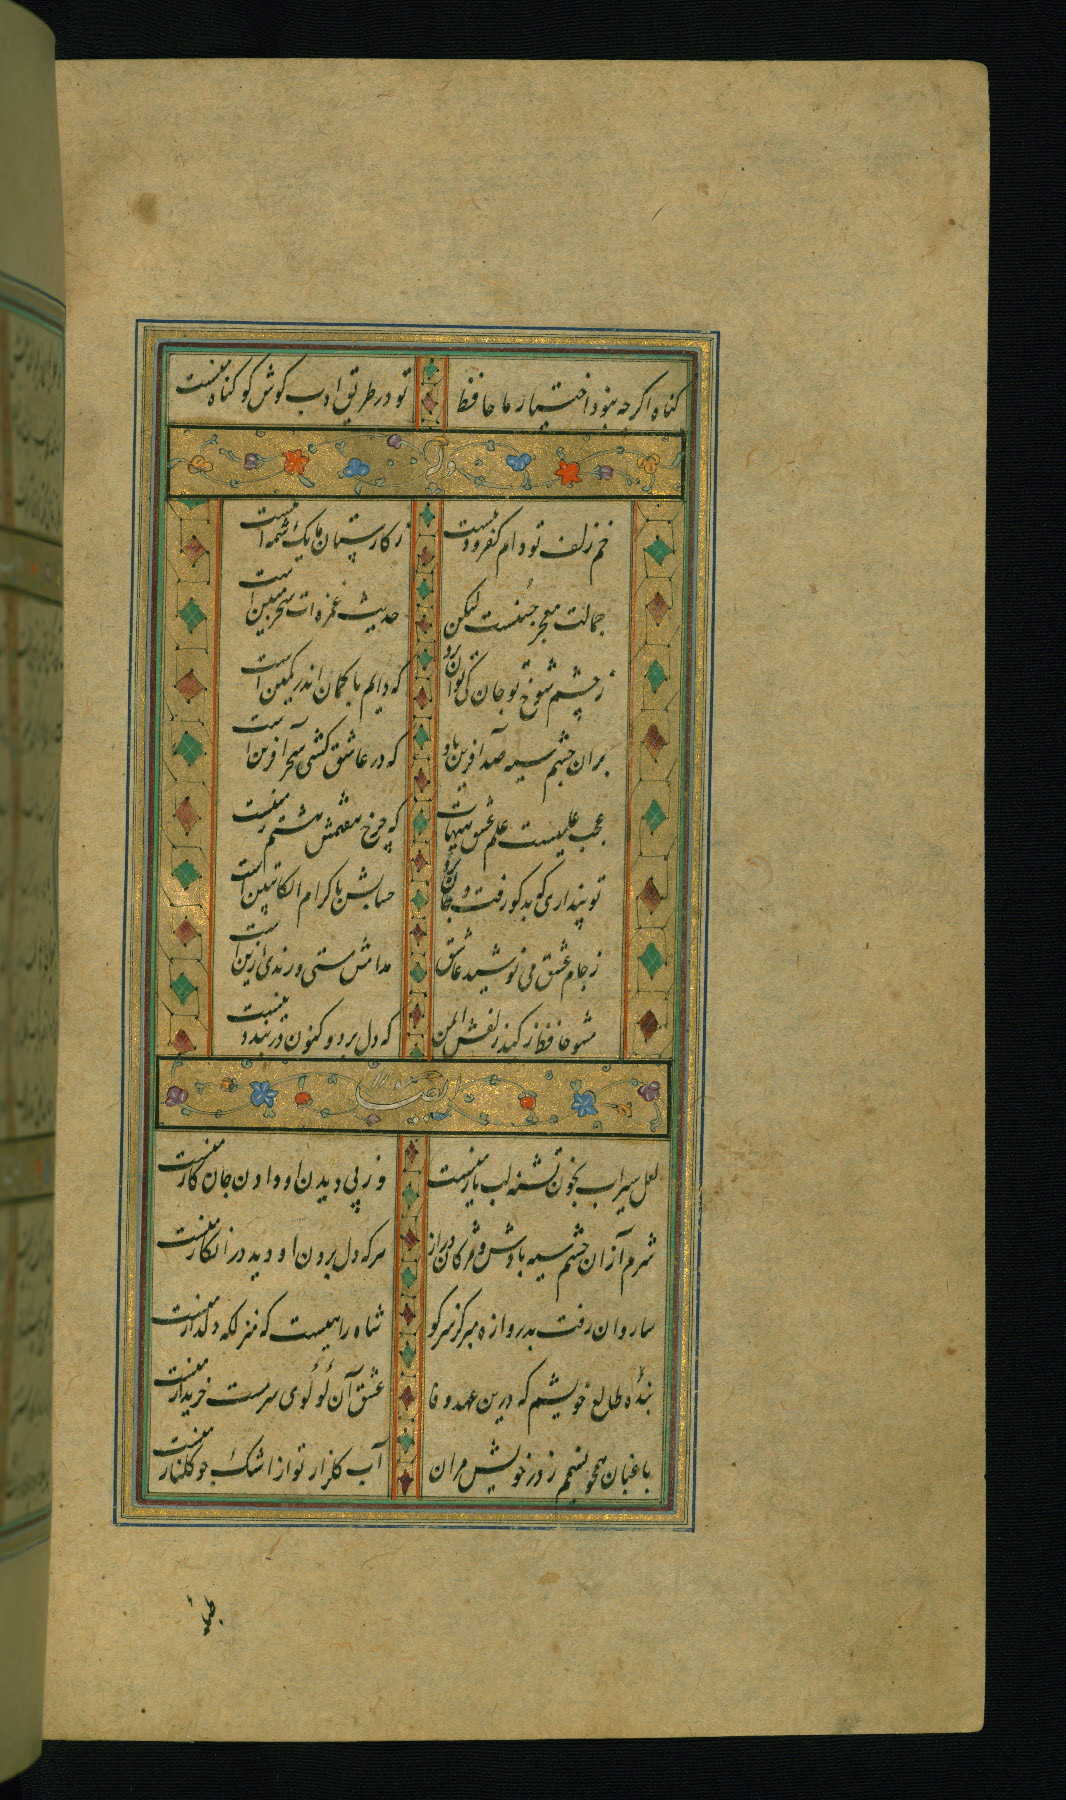 گناه اگرچه نبود اختیار ما حافظ تو در طریق ادب کوش کو گناه منست
وله
خم زلف تو دام کفر و دینست ز کارستان ما یک شمه اینست
جمالت معجز حسنست لیکن حدیث غمزه‌ات سحر مبین است
ز چشم شوخ تو جان کی توان برد که دایم با کمان اندر کمین است
بران چشم سیه صد آفرین باد که در عاشق کشی سحر آفرین است
عجب علمیست علم عشق هیهات که چرخ هفتمش هشتم زمینست
تو پنداری که بدگو رفت و جان برد حسابش با کرام الکاتبین است
ز جام عشق می نوشید عاشق مدامش مستی و رندی ازین است
مشو حافظ ز کید زلفش ایمن که دل برد و کنون در بند دینست
ایضا
لعل سیراب بخون تشنه لب یار منست وز پی دیدن او دادن جان کار منست
شرم ازان چشم سیه بادش و مژگان دراز هرکه دل بردن او دید و در انکار منست
ساروان رخت بدروازه مبر کز سر کو شاه راهیست که منزلگه دلدار منست
بنده طالع خویشم که درین عهد وفا عشق آن لولوی سرمست خریدار منست
باغبان همچو نسیم ز در خویش مران آب گلزار تو از اشک چو گلنار منست